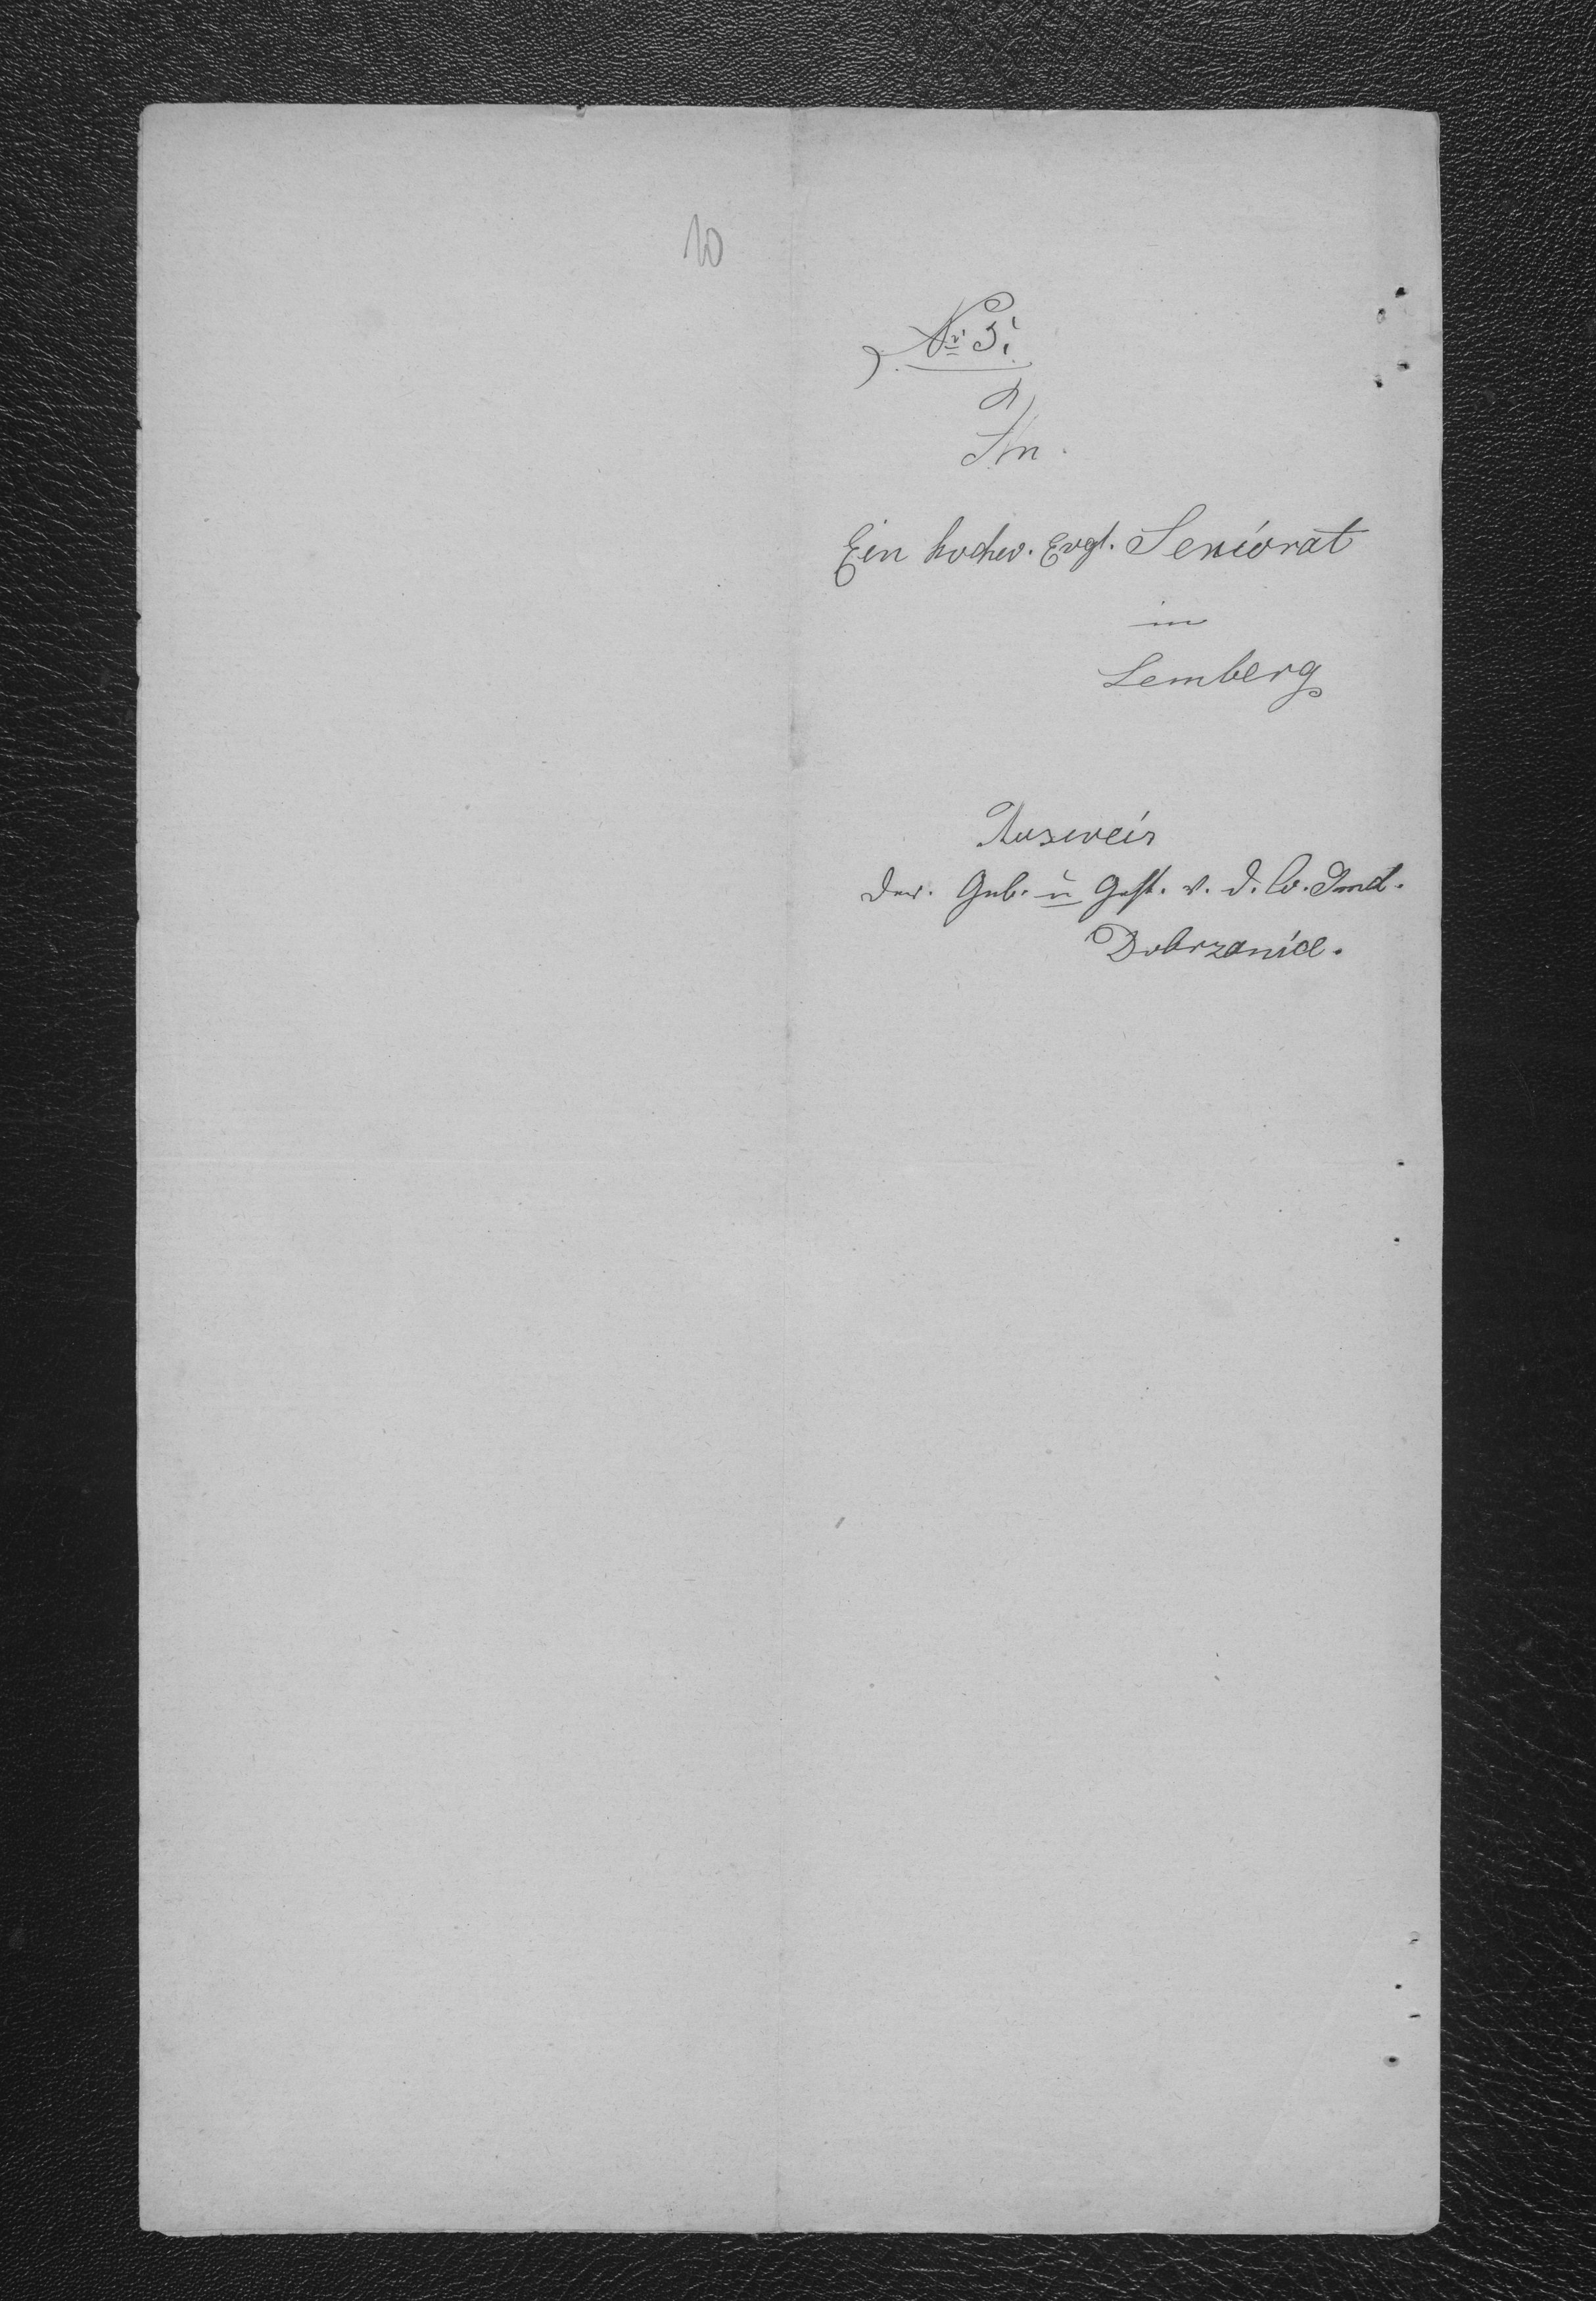 10
Nr 5.
An
Ein hochw. Evgl. Seniorat
in
Lemberg
Ausweis
der. Geb. u Gest. v. d. Ev. Gmd.
Dobrzanica.